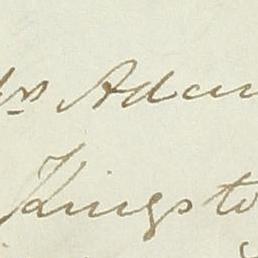 Mrs Adam
Kingsto